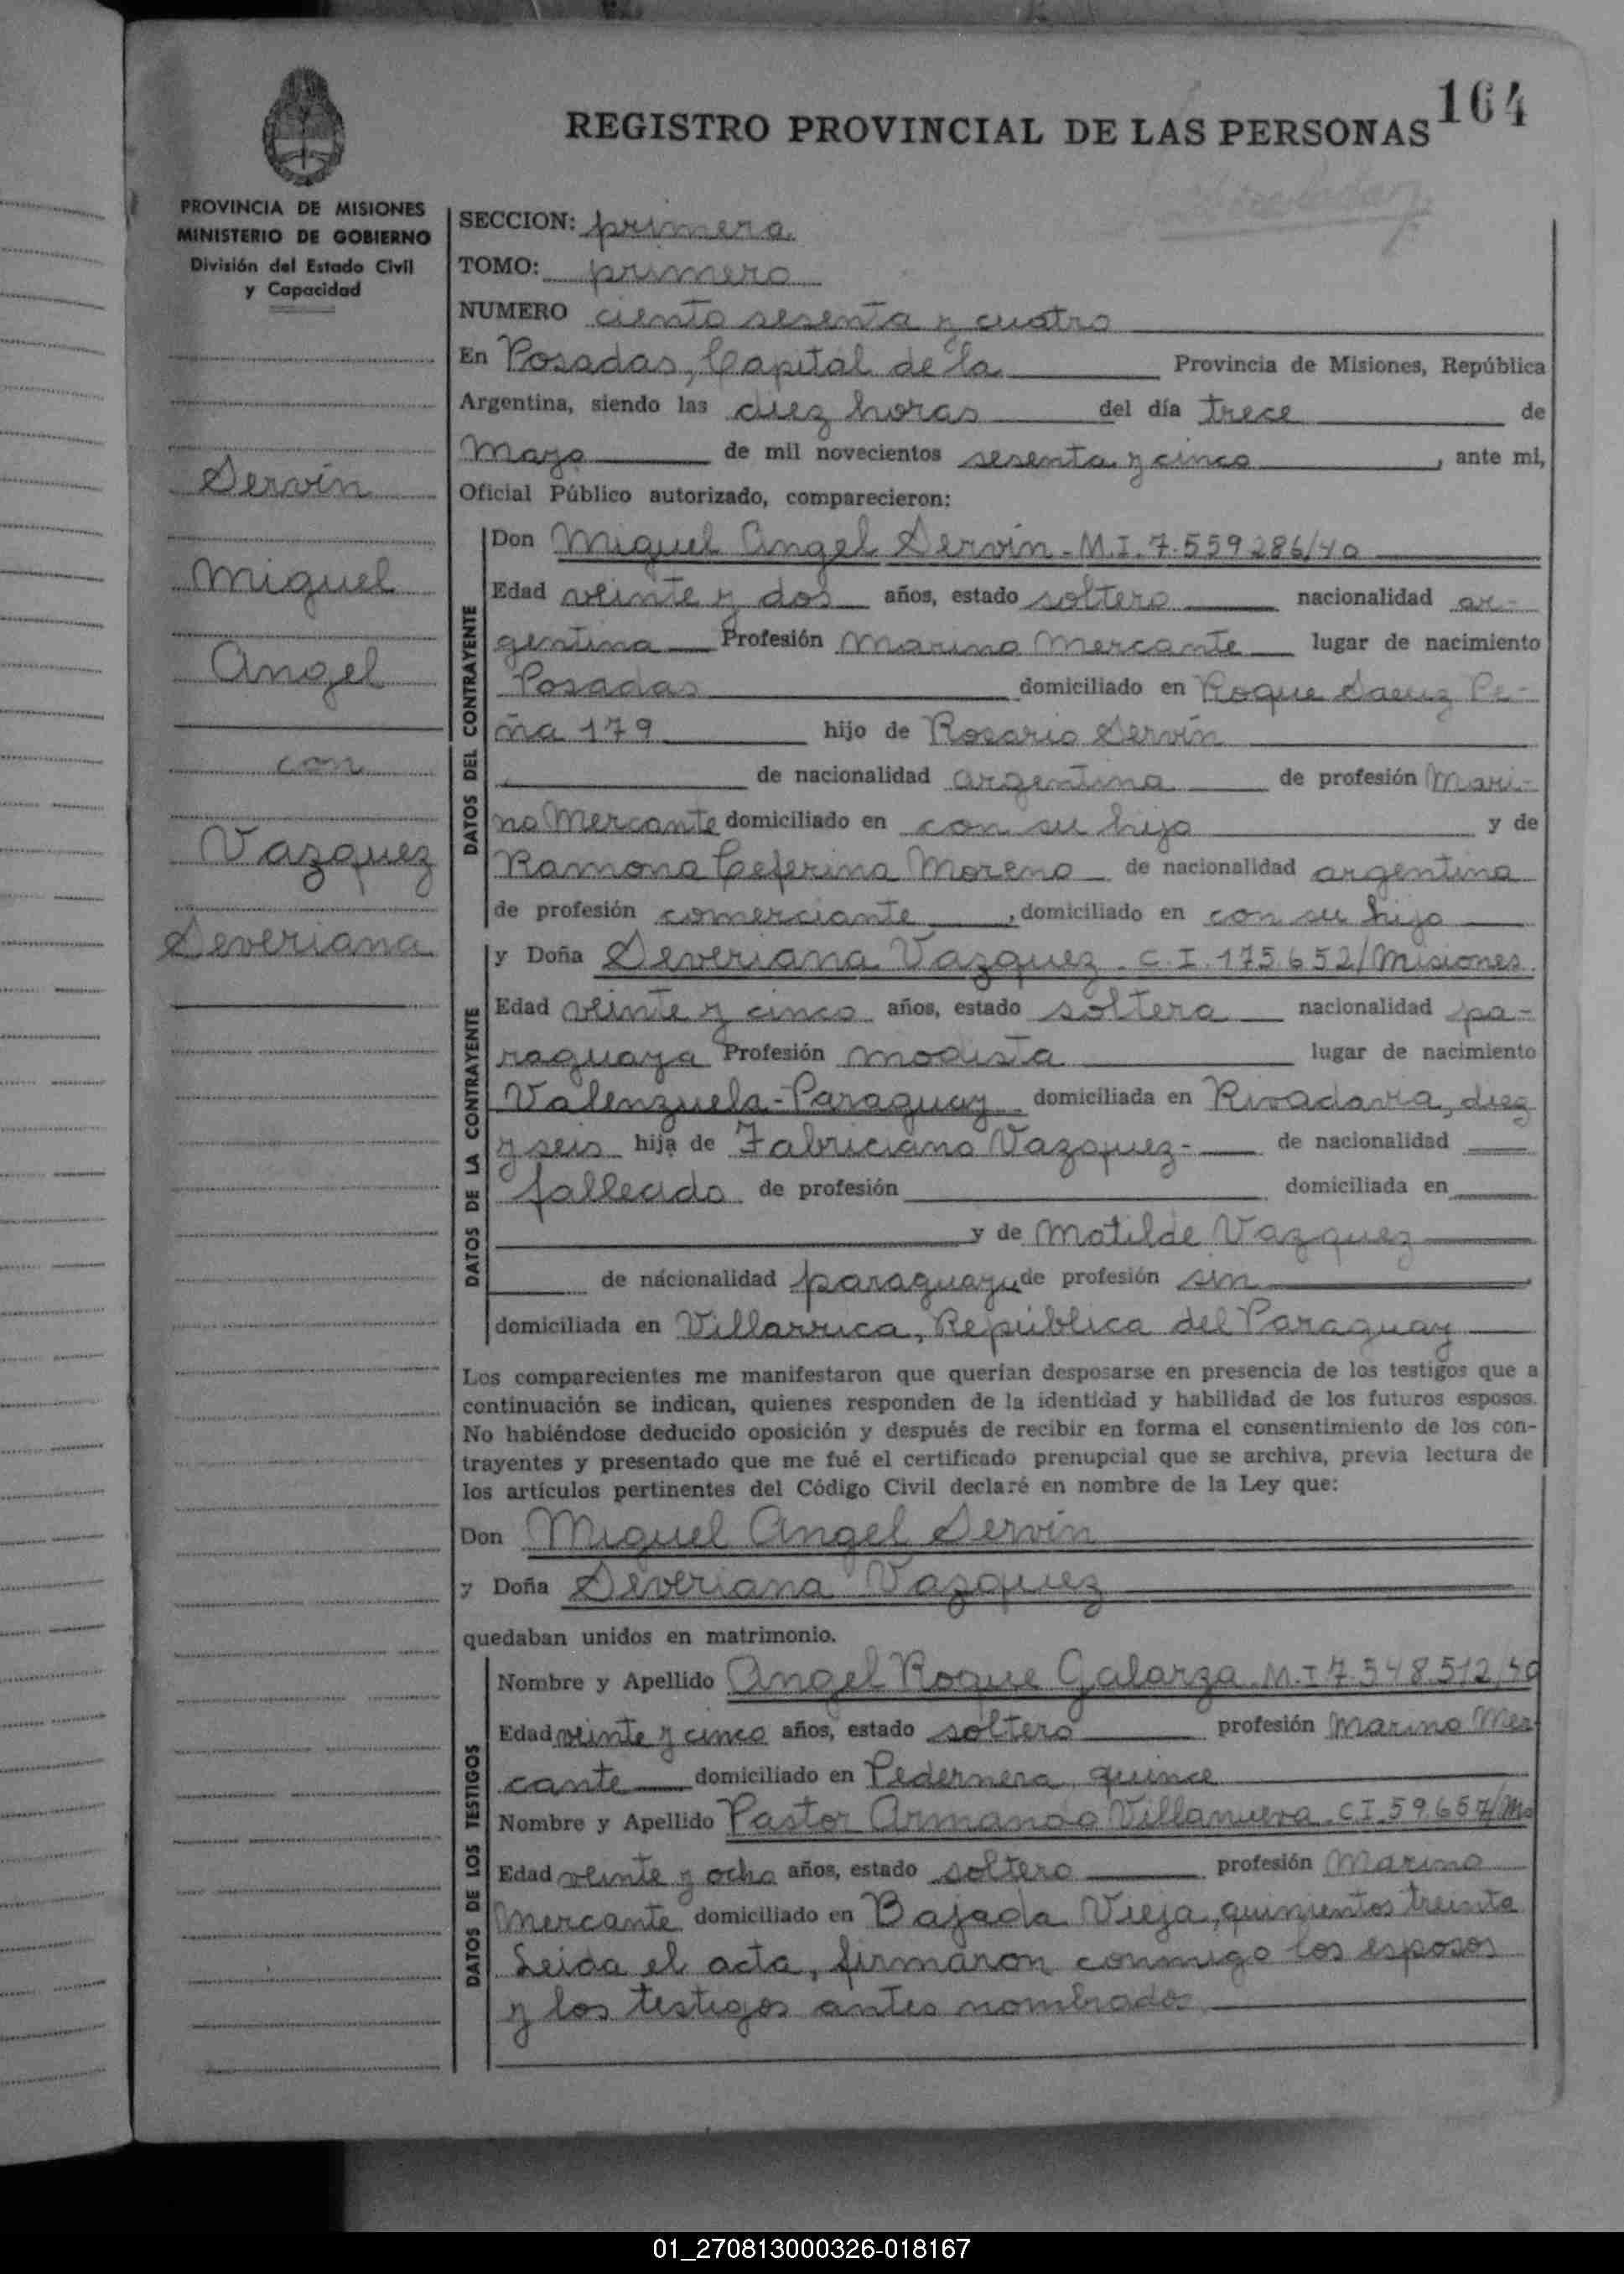 164
REGISTRO PROVINCIAL DE LAS PERSONAS
PROVINCIA DE MISIONES
MINISTERIO DE GOBIERNO
División del Estado Civil
y Capacidad
Servín
Miguel
Angel
con
Vazquez
Severiana
SECCION: primera
TOMO: primero
NUMERO ciento sesenta y cuatro
En Posadas, Capital de la Provincia de Misiones, República
Argentina, siendo las diez horas del día trece de
Mayo de mil novecientos sesenta y cinco, ante mi,
Oficial Público autorizado, comparecieron:
DATOS DEL CONTRAYENTE
Don Miguel Angel Servín - M.I. 7.559.286/40
Edad veinte y dos años, estado soltero nacionalidad ar-
gentina Profesión Marino Mercante lugar de nacimiento
Posadas domiciliado en Roque Saenz Pe-
ña 179 hijo de Rosario Servín
de nacionalidad argentina de profesión Mari-
no Mercante domiciliado en con su hijo y de
Ramona Ceferina Moreno de nacionalidad argentina
de profesión comerciante, domiciliado en con su hijo
DATOS DE LA CONTRAYENTE
y Doña Severiana Vazquez - C.I. 175.652/Misiones
Edad veinte y cinco años, estado soltera nacionalidad pa-
raguaya Profesión modista lugar de nacimiento
Valenzuela-Paraguay domiciliada en Rivadavia, diez
y seis hija de Fabriciano Vazquez- de nacionalidad
fallecido de profesión domiciliada en
y de Matilde Vazquez
de nacionalidad paraguaya de profesión sin
domiciliada en Villarrica, República del Paraguay
Los comparecientes me manifestaron que querían desposarse en presencia de los testigos que a
continuación se indican, quienes responden de la identidad y habilidad de los futuros esposos.
No habiéndose deducido oposición y después de recibir en forma el consentimiento de los con-
trayentes y presentado que me fué el certificado prenupcial que se archiva, previa lectura de
los artículos pertinentes del Código Civil declaré en nombre de la Ley que:
Don Miguel Angel Servín
y Doña Severiana Vazquez
quedaban unidos en matrimonio.
DATOS DE LOS TESTIGOS
Nombre y Apellido Angel Roque Galarza. M.I 7.548.512/40
Edad veinte y cinco años, estado soltero profesión Marino Mer
cante domiciliado en Pedernera, quince
Nombre y Apellido Pastor Armando Villanueva. C.I. 59.657/Ms
Edad veinte y ocho años, estado soltero profesión Marino
Mercante domiciliado en Bajada Vieja, quinientos treinta
Leida el acta, firmaron conmigo los esposos
y los testigos antes nombrados
01_270813000326-018167